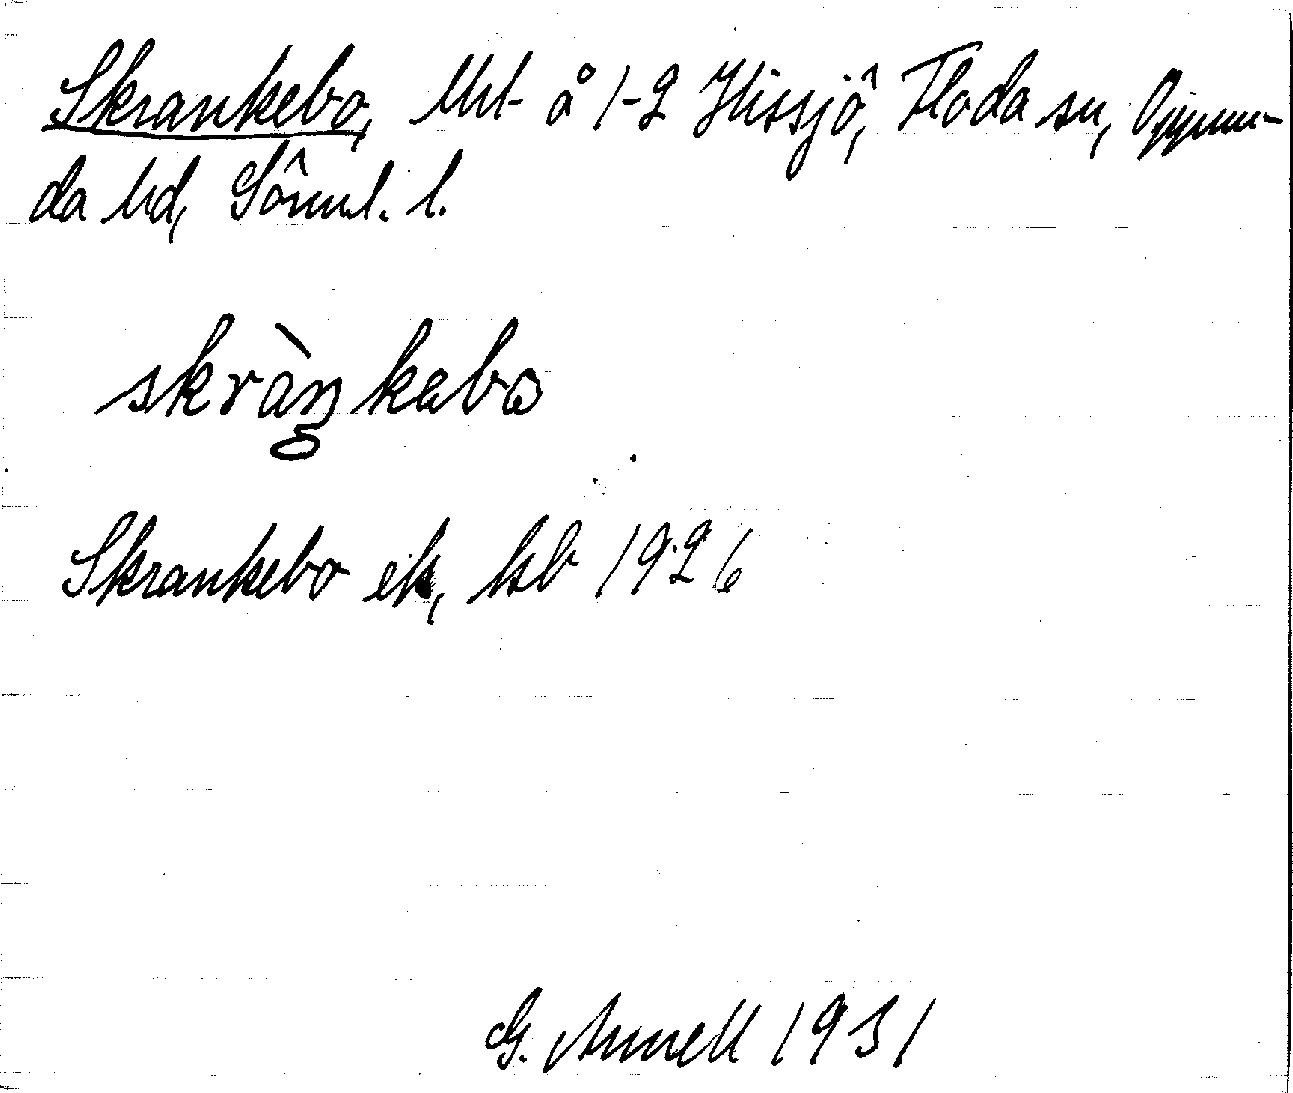 Skrankebo, Uht å 1-2 Hissjö, Floda sn, Oppun-
da hd, Sörml. l.
skràŋkebo
Skrankebo ek, hsb 1926
G. Annell 1931